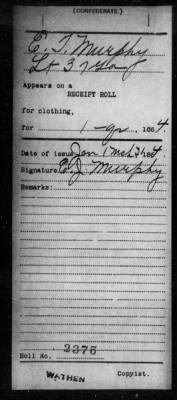 (CONFEDERATE)
E. J. Murphy
Lt 37 Va
Appears on a
RECEIPT ROLL
for clothing,
for 1 qr, 1864.
Date of issue Jan 1 Mch 1864
Signature E. J. Murphy
Remarks:
Roll No. 2376
WATHEN
Copyist.